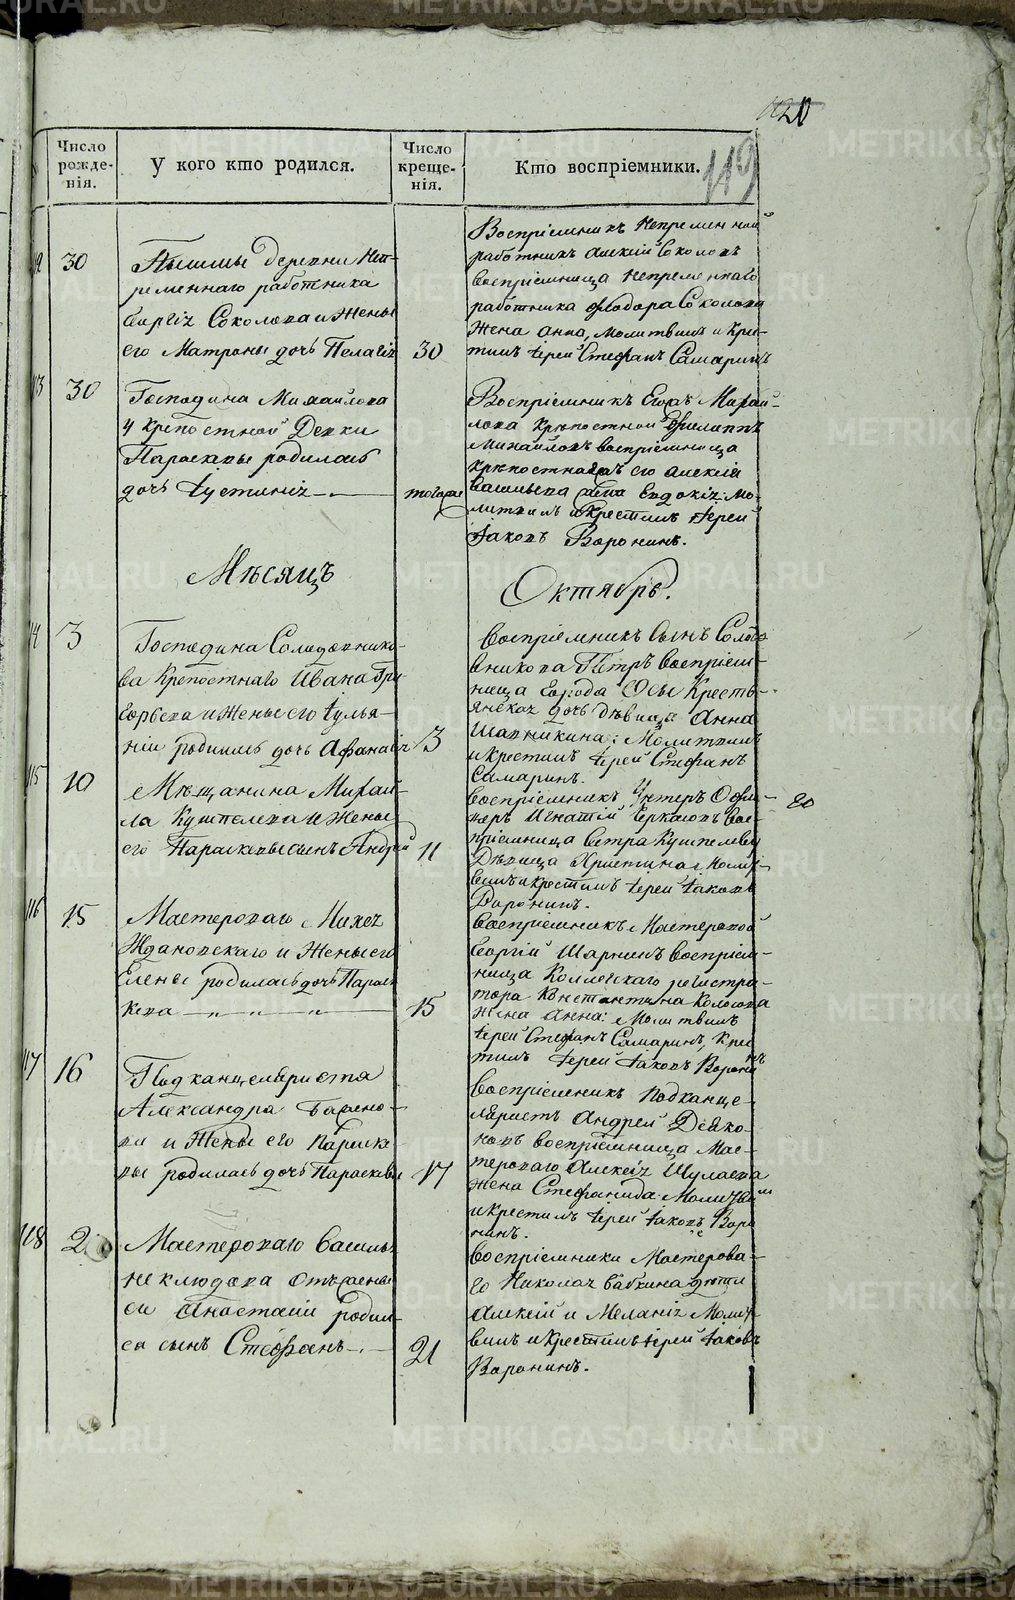 120
119
Число рожде-нія.
У кого кто родился.
Число креще-нія.
Кто воспріемники.
30
Пышмы деревни Неп-
ременнаго работника
Сергія Соколова и жены
его Матроны дочь Пелагія
30
Воспріемникъ Непременной
работникъ Алексій Соколовъ
воспріемница Непременнаго
работника Федора Соколова
жена Анна, Молитвилъ и Кре-
тилъ Іерей Стефанъ Самаринъ
113
30
Господина Михайлова
крепостной Девки
Параскевы родилась
дочь Іустинія
тогоже
Воспріемникъ Егоръ Михай-
лова Крѣпостной Филиппъ
Михайловъ воспріемница
его Алексія
Васильева жена Евдокія: Мо-
литвилъ и Крестилъ Іерей
Іаковъ Воронинъ.
Мѣсяцъ
Октябрь.
114
3
Господина Солодовнико-
ва Крепостнаго Ивана Гри
горьева и жены его Іулья-
ніи родилась дочь Афанасія
3
Воспріемникъ Сынъ Солодо
вникова Петръ воспріем-
ница Города Осы Кресть-
янская дочь дѣвица Анна
Шапникина: Молитвилъ
и крестилъ Іерей Стефанъ
Самаринъ.
115
10
Мѣщанина Михай-
ла Кушпелева и Жены
его Параскевы сынъ Андрей
11
воспріемникъ Унтеръ Офи-
церъ Игнатій Черкасовъ вос-
пріемница Сестра Кушпелеву
Дѣвица Христина: Молит-
вилъ и крестилъ Іерей Іаковъ
Воронинъ.
20
116
15
Мастероваго Михея
Ждановскаго и Жены его
Елены родилась дочь Параск
кева
15
Воспріемникъ Мастеровой
Георгій Шаринъ воспріем-
ница Коллежскаго регистра-
тора Константина Колосова
жена Анна: Молитвилъ
Іерей Стефанъ Самаринъ, Кре
тилъ Іерей Іаковъ Воронинъ
117
16
Подканцеляриста
Александра Бажено-
ва и Жены его Параске
вы родилась дочь Параскевы
17
Воспріемникъ Подканце-
ляристъ Андрей Дьяко-
новъ воспріемница Мас-
тероваго Алексія Шулаева
Жена Стефанида: Молитвилъ
и крестилъ Іерей Іаковъ Воро
нинъ.
118
20
Мастероваго Василья
Неклюдова отъ жены
ея Анастасіи родил-
ся сынъ Стефанъ
21
Воспріемники Мастерова-
го Николая Бабкина дети
Алексій и Меланія Молит-
вилъ и Крестилъ Іерей Іаковъ
Воронинъ.
METRIKI.GASO-URAL.RU